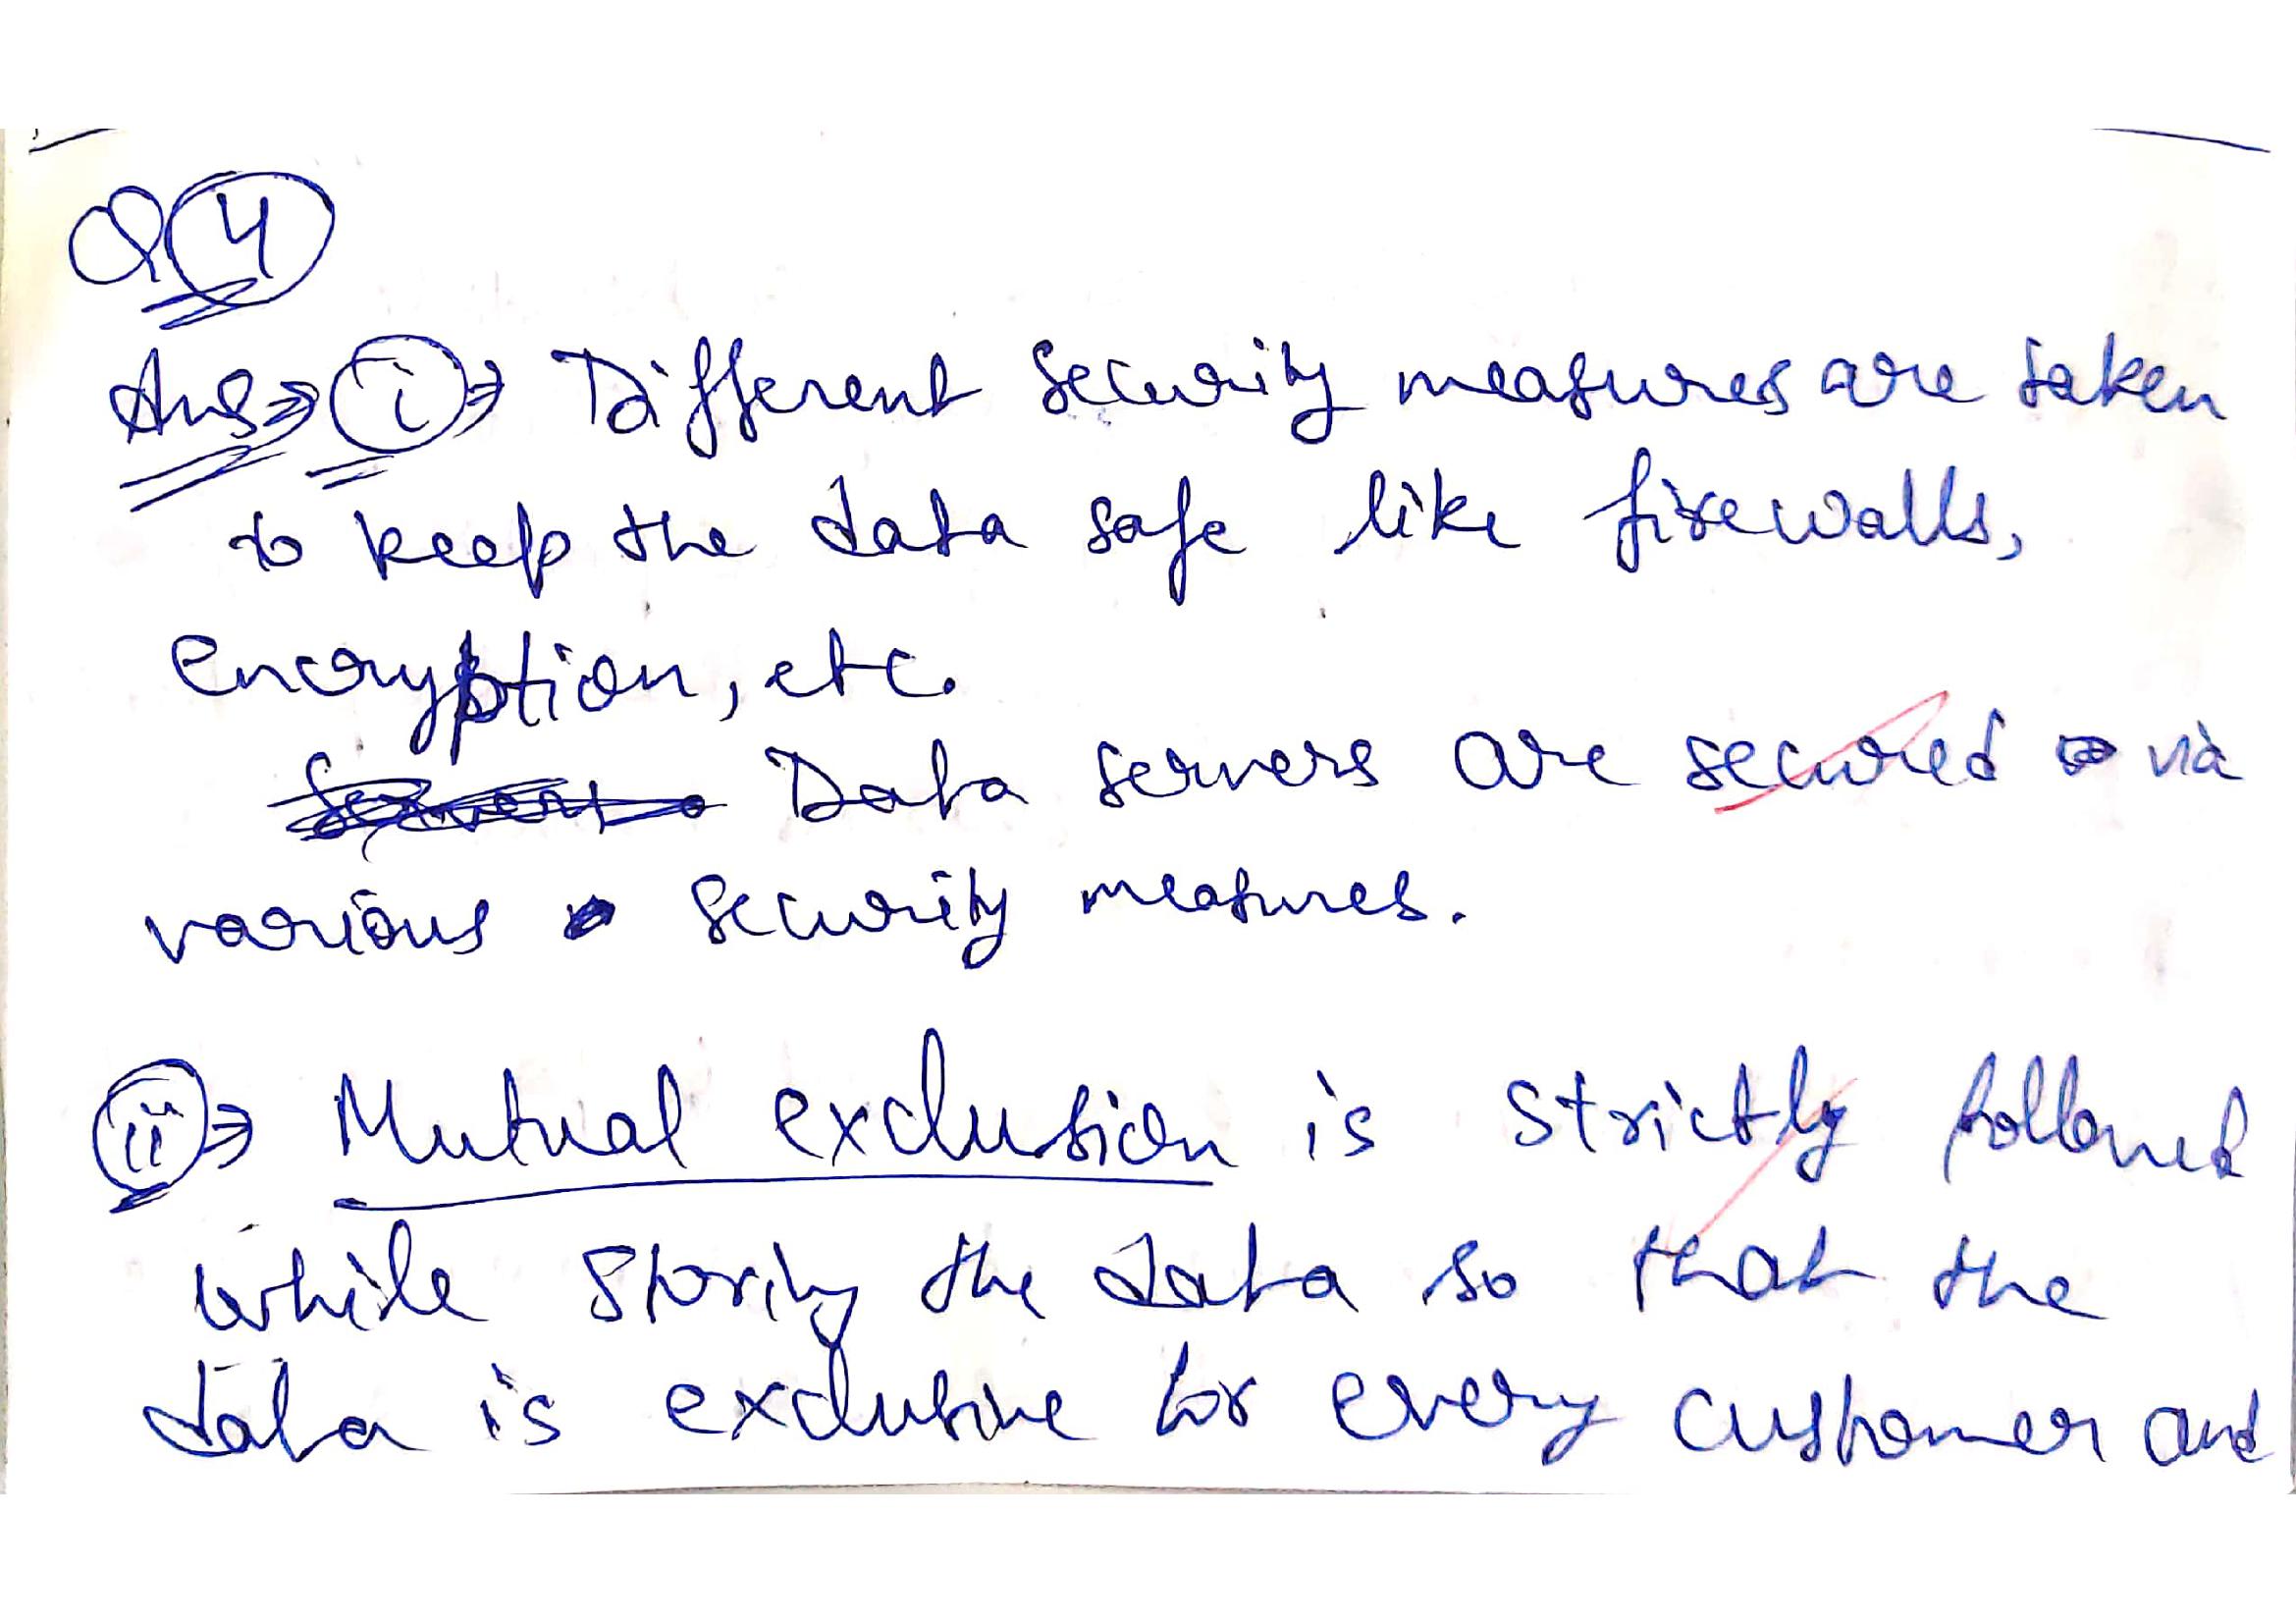 Q 4
Ans → i → Different security measures are taken
to keep the data safe like firewalls,
encryption, etc.
Data servers are secured via
various security measures.
ii → Mutual exclusion is strictly followed
while storing the data so that the
data is exclusive for every customer and